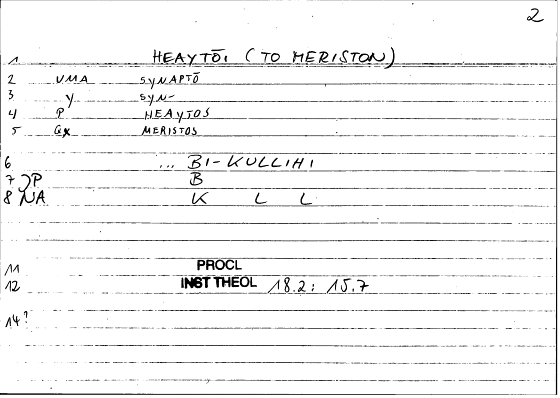 2
1 HEAYTŌI (TO MERISTON)
2 VMA SYNAPTŌ
3 Y SYN-
4 P HEAYTOS
5 Gx MERISTOS
6 ... BI-KULLIHI
7 )P B
8 NA K L L
11 PROCL
12 INST THEOL 18.2: 15.7
14?